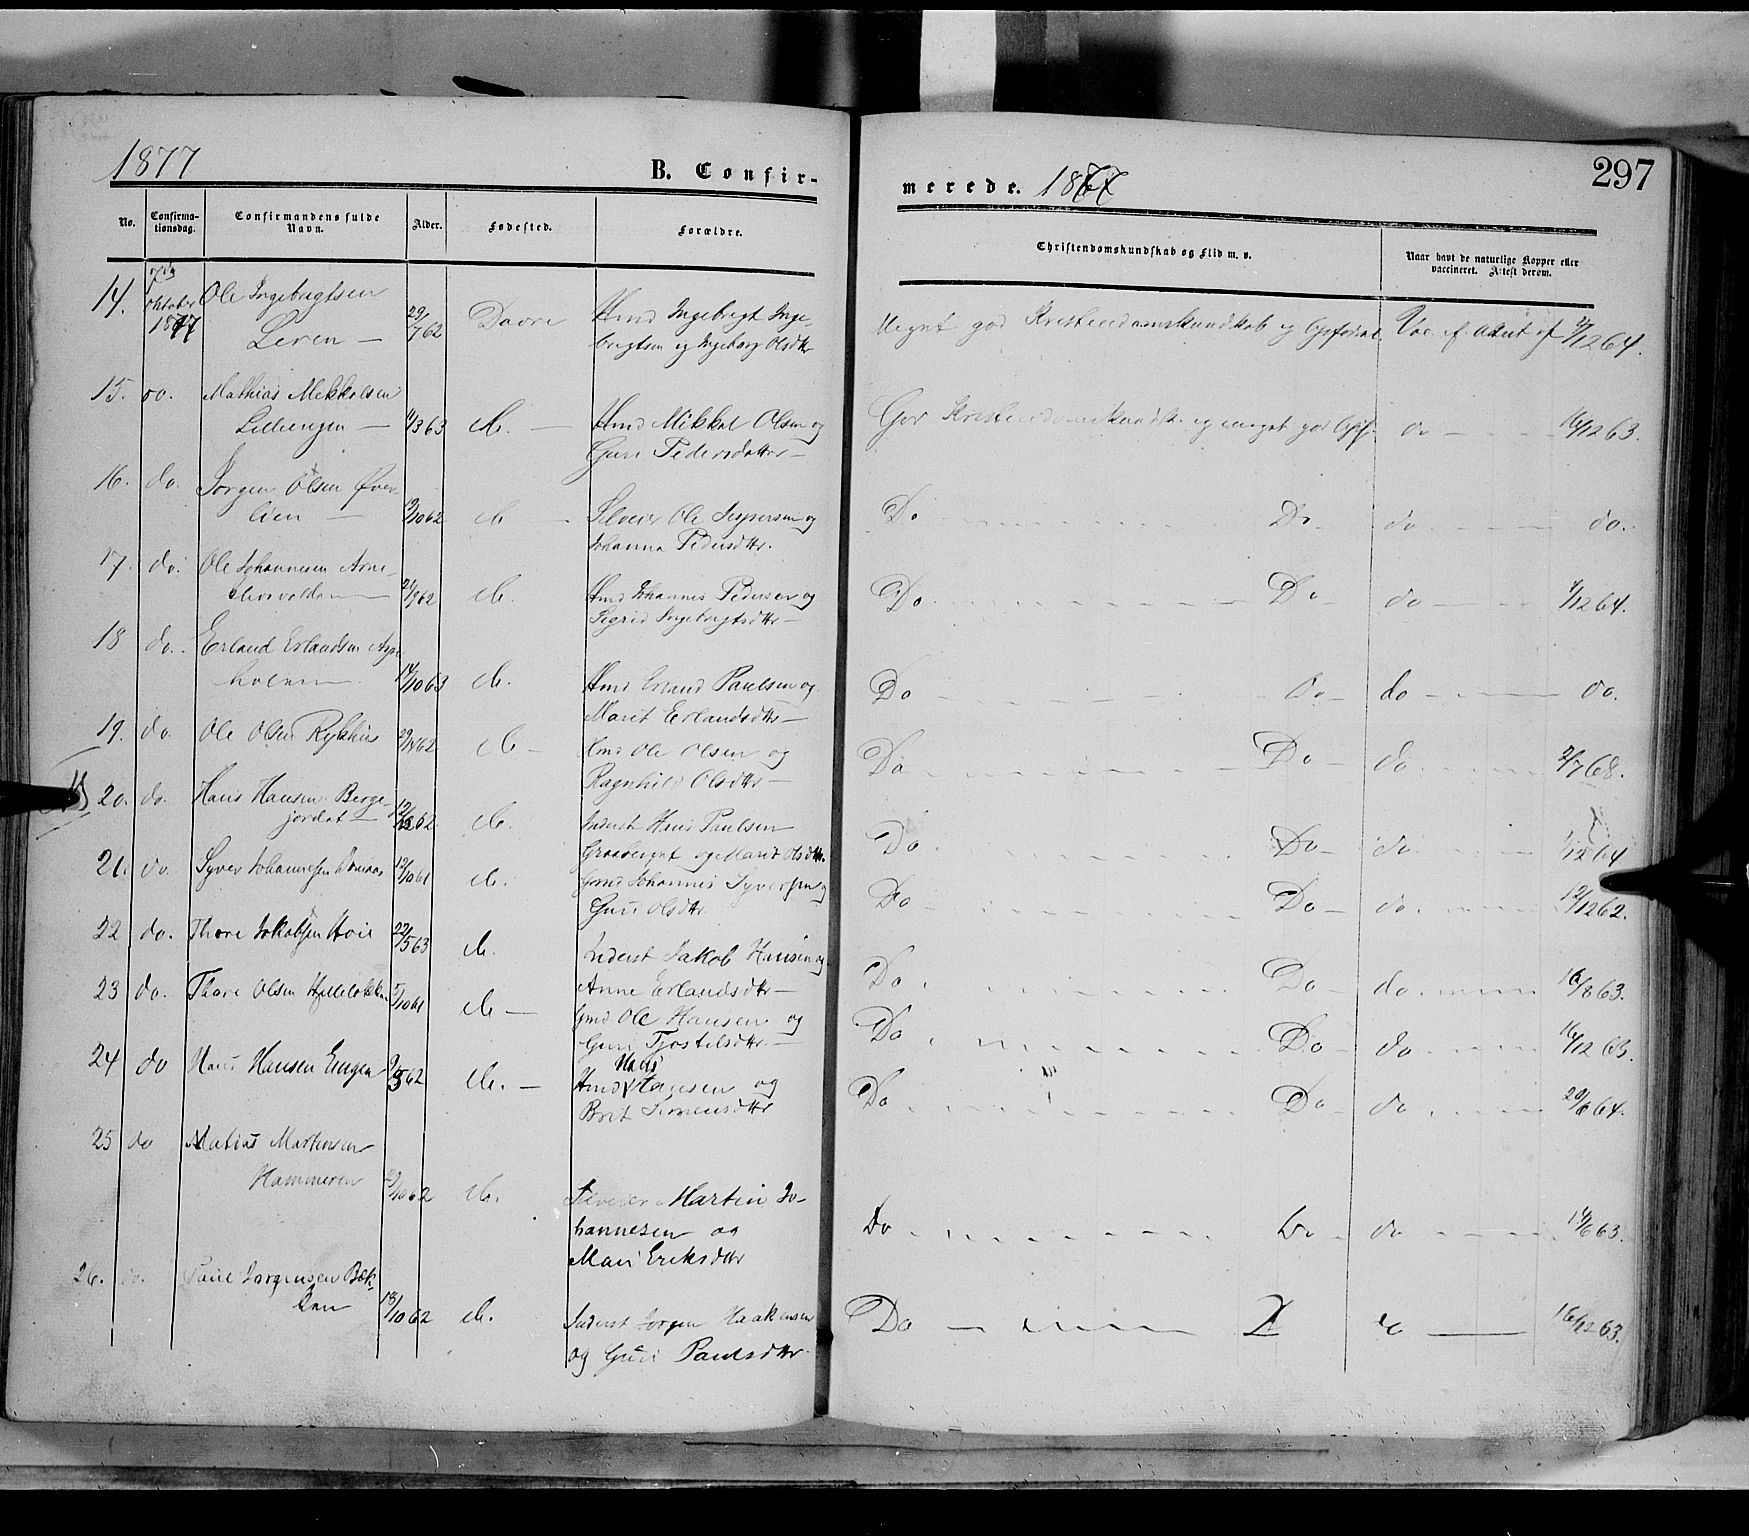 1877
B. Confir-
merede. 1877
297
No.
Confirma-
tionsdag.
Confirmandens fulde
Navn.
Alder.
Fødested.
Forældre.
Christendomskundskab og Flid m. v.
Naar havt de naturlige Kopper eller
vaccineret. Attest derom.
14. oktober 1877 Ole Ingebrigtsen
Leren — 29/7 62 Dovre Hmd Ingebrigt Inge-
brigtsen og Ingeborg Olsdttr
Meget god Kristendomskundskab og Opførsel Vac. if. Attest af 4/12 64.
15. do. Mathias Mikkelsen
Lillengen — 4/3 63 do. — Hmd Mikkel Olsen og
Guri Pedersdatter —
God Kristendomskundsk. og meget god Opf. do — 16/12 63.
16. do. Jørgen Olsen Øver-
lien — 9/10 62 do — Selveier Ole Jespersen og
Johanna Pedersdttr.
Do — Do — do — do.
17. do. Ole Johannesen Arne-
— 24/9 62 do. Hmd Johannes Pedersen og
Sigrid Ingebrigtsdttr —
Do — Do — do — 4/12 64.
18 do. Erland Erlandsen Aspe-
holen — 14/10 63 do. Hmd Erland Paulsen og
Marit Erlandsdttr —
Do — Do — do — do.
19. do. Ole Olsen Rykhus 62 do — Hmd Ole Olsen og
Ragnhild Olsdttr —
Do — Do — do — 2/7 68.
20. do. Hans Hansen Berge-
jordet — 62 do. Inderst Hans Paulsen
og Marit Olsdttr.
Do — Do — do — 1/12 64
21. do Syver Johannesen 12/10 61 do. Gmd Johannes Syversen og
Guri Olsdttr.
Do — Do — do. — 12/12 62.
22 do. Thore Jakobsen Hoie 22/5 63 do. Inderst Jakob Hansen og
Anne Erlandsdttr —
Do — Do — do. — 16/8 63.
23 do. Thore Olsen 5/10 61 do — Gmd Ole Hansen og
Guri Tjostelsdttr. —
Do — Do — do — 16/12 63.
24 do Hans Hansen Engen 62 do. — Hmd Hans Hansen og
Brit Simensdttr
Do — Do — do — 20/6 64.
25 do Matias Martinsen
Hammeren 10 62 do. Selveier Martin Jo-
hannesen og
Mari Eriksdttr
Do — Do — do — 14/6 63.
26. do. Paul Jørgensen Bæk-
ken 13/10 62 do. Inderst Jørgen Haakensen
og Guri Paulsdttr.
Do — do — 16/12 63.